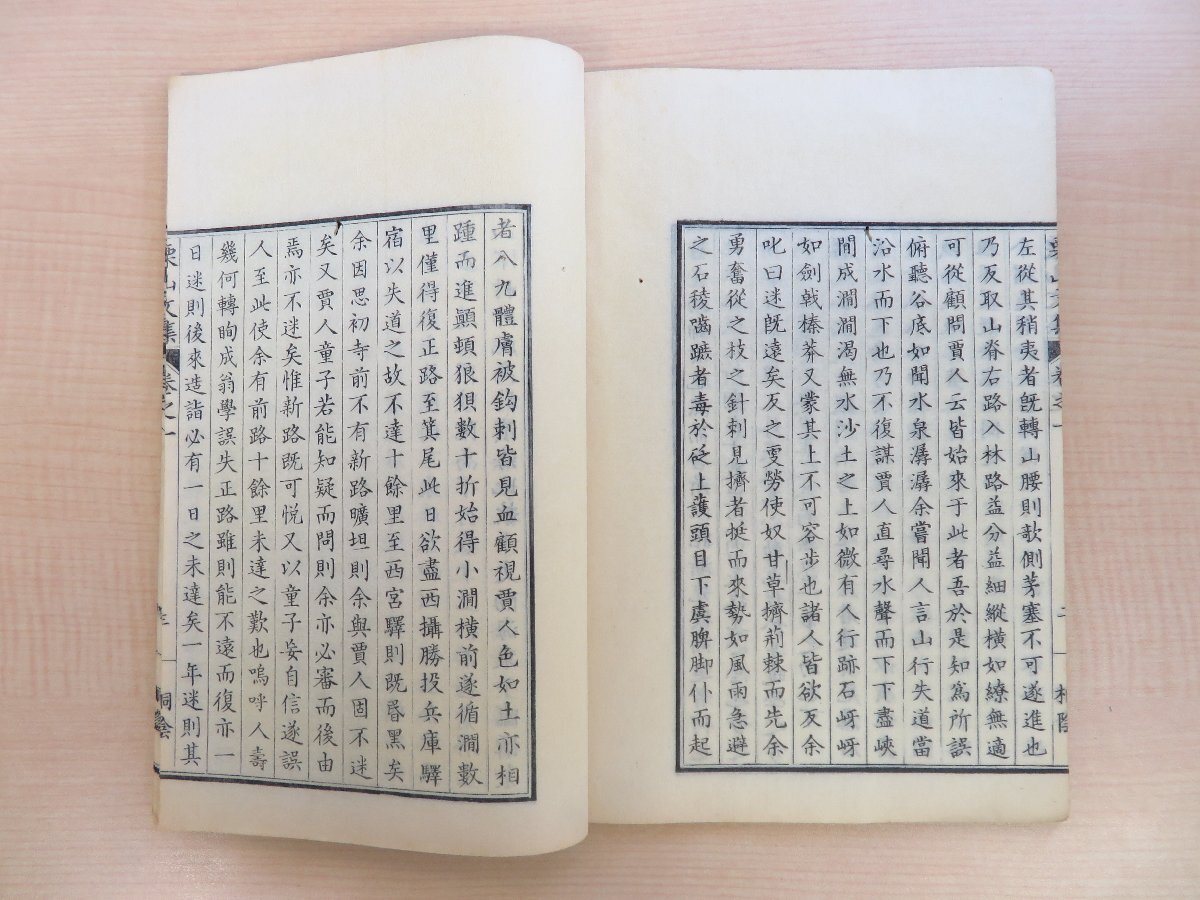 左從其稍夷者旣轉山腰則欹側茅塞不可遂進也
乃反取山脊右路入林路益分益細縱橫如繚無適
可從顧問賈人云皆始來于此者吾於是知爲所誤
俯聽谷底如聞水泉潺潺余嘗聞人言山行失道當
沿水而下也乃不復謀賈人直尋水聲而下下盡峽
間成澗澗渴無水沙土之上如微有人行跡石岈岈
如劍戟榛莽又蒙其上不可容步也諸人皆欲反余
叱曰迷旣遠矣反之更勞使奴甘草擠荊棘而先余
勇奮從之枝之針刺見擠者挺而來勢如風雨急避
之石稜嚙蹠者毒於砭上護頭目下虞脾脚仆而起
者八九體膚被鈎刺皆見血顧視賈人色如土亦相
踵而進顚頓狼狽數十折始得小澗橫前遂循澗數
里僅得復正路至箕尾此日欲盡西攝勝投兵庫驛
宿以失道之故不達十餘里至西宮驛則旣昏黑矣
余因思初寺前不有新路曠坦則余與賈人固不迷
矣又賈人童子若能知疑而問則余亦必審而後由
焉亦不迷矣惟新路旣可悅又以童子妄自信遂誤
人至此使余有前路十餘里未達之歎也嗚呼人壽
幾何轉眴成翁學誤失正路雖則能不遠而復亦一
日迷則後來造詣必有一日之未達矣一年迷則其
栗山文集
卷之一
三
桐陰